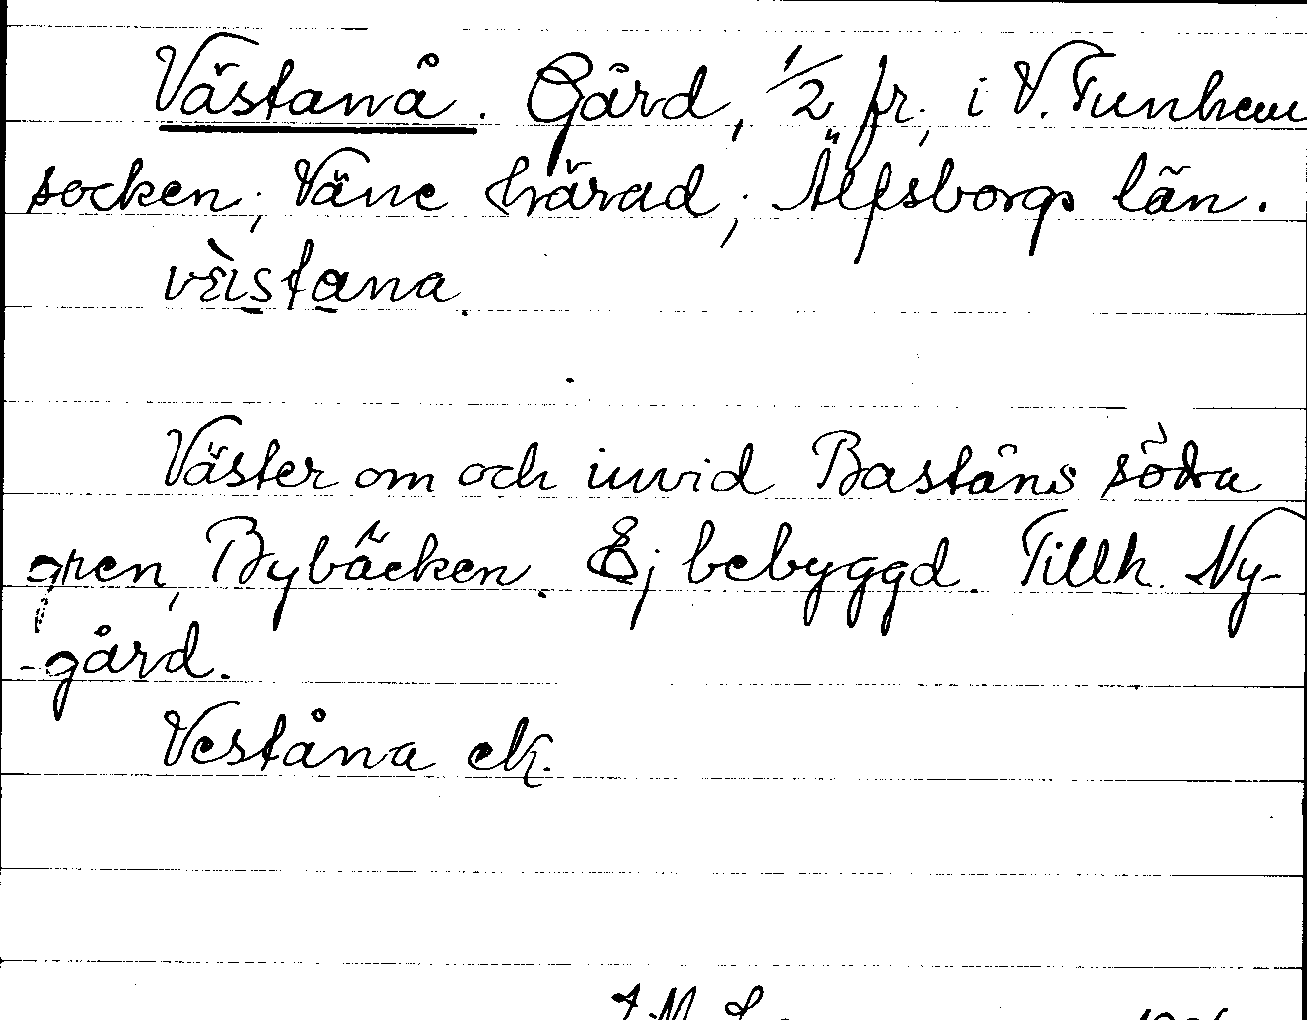 Västanå. Gård, 1/2 fr., i V. Tunhem
socken, Väne härad, Älfsborgs län.
vɛ̀istana.
Väster om och invid Baståns södra
gren, Bybäcken. Ej bebyggd. Tillh. Ny-
-gård.
Veståna ek.